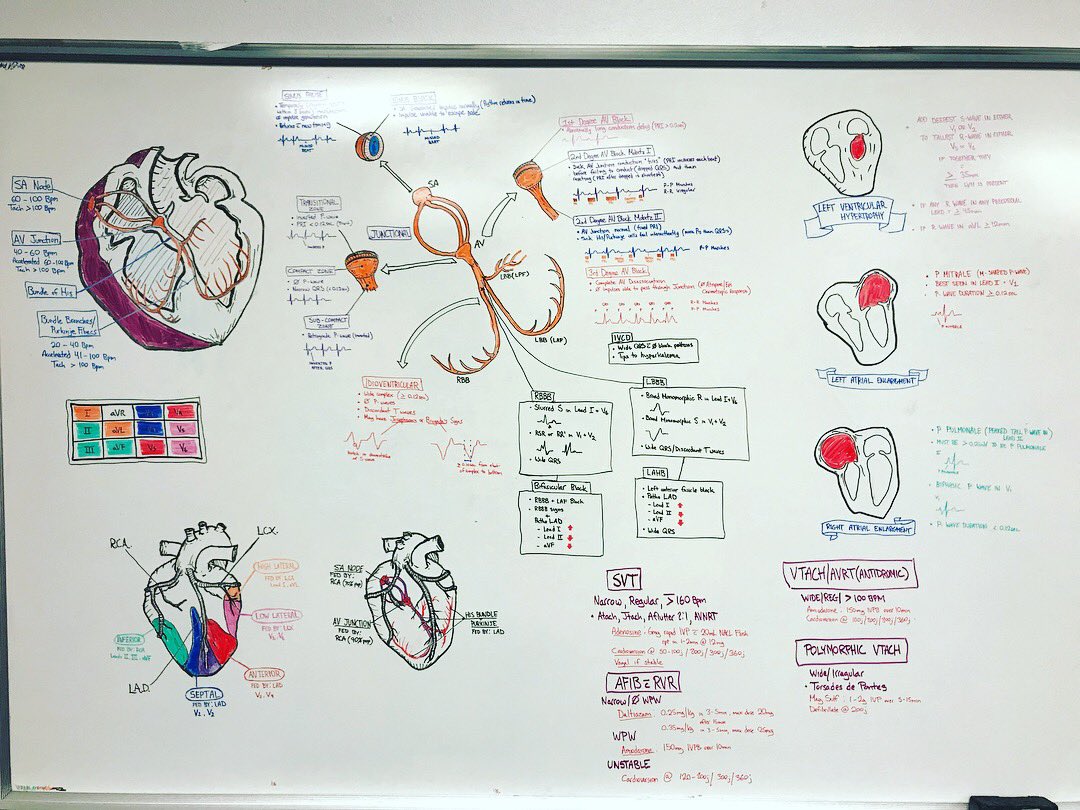 SINUS PAUSE
Returns c new timing
MISSED BEAT
SINUS BLOCK
Impulse unable to escape node
MISSED BEAT
1st Degree AV Block
Abnormally long conduction delay (PRI > 0.2sec)
2nd Degree AV Block Mobitz I
before failing to conduct (dropped QRS) and then
P-P Marches
R-R Irregular
2nd Degree AV Block Mobitz II
AV Junction normal (fixed PRI)
P-P Marches
3rd Degree AV Block
Complete AV Disassociation
P-P Marches
R-R Marches
SA Node
60 - 100 Bpm
Tach > 100 Bpm
AV Junction
40 - 60 Bpm
Accelerated 60-100 Bpm
Tach > 100 Bpm
Bundle of His
Bundle Branches/
Purkinje Fibers
20 - 40 Bpm
Accelerated 41 - 100 Bpm
Tach > 100 Bpm
TRANSITIONAL
ZONE
Inverted P-wave
COMPACT ZONE
Ø P-wave
Narrow QRS (<0.12sec)
SUB-COMPACT
ZONE
Retrograde P-wave (inverted)
INVERTED P
AFTER QRS
JUNCTIONAL
SA
AV
LBB (LPF)
LBB (LAF)
RBB
IDIOVENTRICULAR
Wide complex (≥ 0.12sec)
Ø P-waves
Discordant T waves
IVCD
Wide QRS c Ø block patterns
Tips to hyperkalemia
RBBB
Slurred S in Lead I + V6
RSR or RR' in V1 + V2
Wide QRS
LBBB
Broad Monomorphic R in Lead I + V6
Broad Monomorphic S in V1 + V2
Wide QRS/Discordant T waves
Bifasicular Block
RBBB + LAF Block
RBBB signs
+
Patho LAD
- Lead I ↑
- Lead II ↓
- aVF ↓
LAHB
Left anterior fascicle block
Patho LAD
- Lead I ↑
- Lead II ↓
- aVF ↓
Wide QRS
I aVR
II aVL V5
III aVF V3 V6
ADD DEEPEST S-WAVE IN EITHER
V1 OR V2
TO TALLEST R-WAVE IN EITHER
V5 or V6
IF TOGETHER THEY
=
≥ 35mm
THEN LVH IS PRESENT
IF R WAVE IN aVL ≥ 12mm
LEFT VENTRICULAR
HYPERTROPHY
P MITRALE (M-SHAPED P-WAVE)
BEST SEEN IN LEAD II + V1
P-WAVE DURATION ≥ 0.12sec
P MITRALE
LEFT ATRIAL ENLARGEMENT
P PULMONALE (PEAKED TALL P WAVE IN
LEAD II)
BIPHASIC P WAVE IN V1
V1
P WAVE DURATION < 0.12sec
RIGHT ATRIAL ENLARGEMENT
RCA
LCX
HIGH LATERAL
FED BY: LCX
Lead I, aVL
LOW LATERAL
FED BY: LCX
V5, V6
INFERIOR
FED BY: RCA
Leads II, III, aVF
L.A.D.
SEPTAL
FED BY: LAD
V1, V2
ANTERIOR
FED BY: LAD
V3, V4
SA NODE
FED BY:
AV JUNCTION
FED BY:
HIS BUNDLE
PURKINJE
FED BY: LAD
SVT
Narrow, Regular, > 160 Bpm
Atach, Jtach, Aflutter 2:1, AVNRT
Adenosine : 6mg rapid IVP c 20mL NaCl Flush
rpt in 1-2min @ 12mg
Cardioversion @ 50-100j / 200j / 300j / 360j
Vagal if stable
AFIB c RVR
Narrow/Ø WPW
Diltiazem : 0.25mg/kg in 3-5min, max dose 20mg
after 15min
0.35mg/kg in 3-5min, max dose 25mg
WPW
Amiodarone : 150mg IVPB over 10min
UNSTABLE
Cardioversion @ 120-200j / 300j / 360j
VTACH/AVRT (ANTIDROMIC)
WIDE/REG/ > 100 BPM
Amiodarone : 150mg IVPB over 10min
Cardioversion @ 100j / 200j / 300j / 360j
POLYMORPHIC VTACH
Wide/Irregular
Torsades de Pointes
Mag Sulf : 1-2g IVP over 5-15min
Defibrillate @ 200j